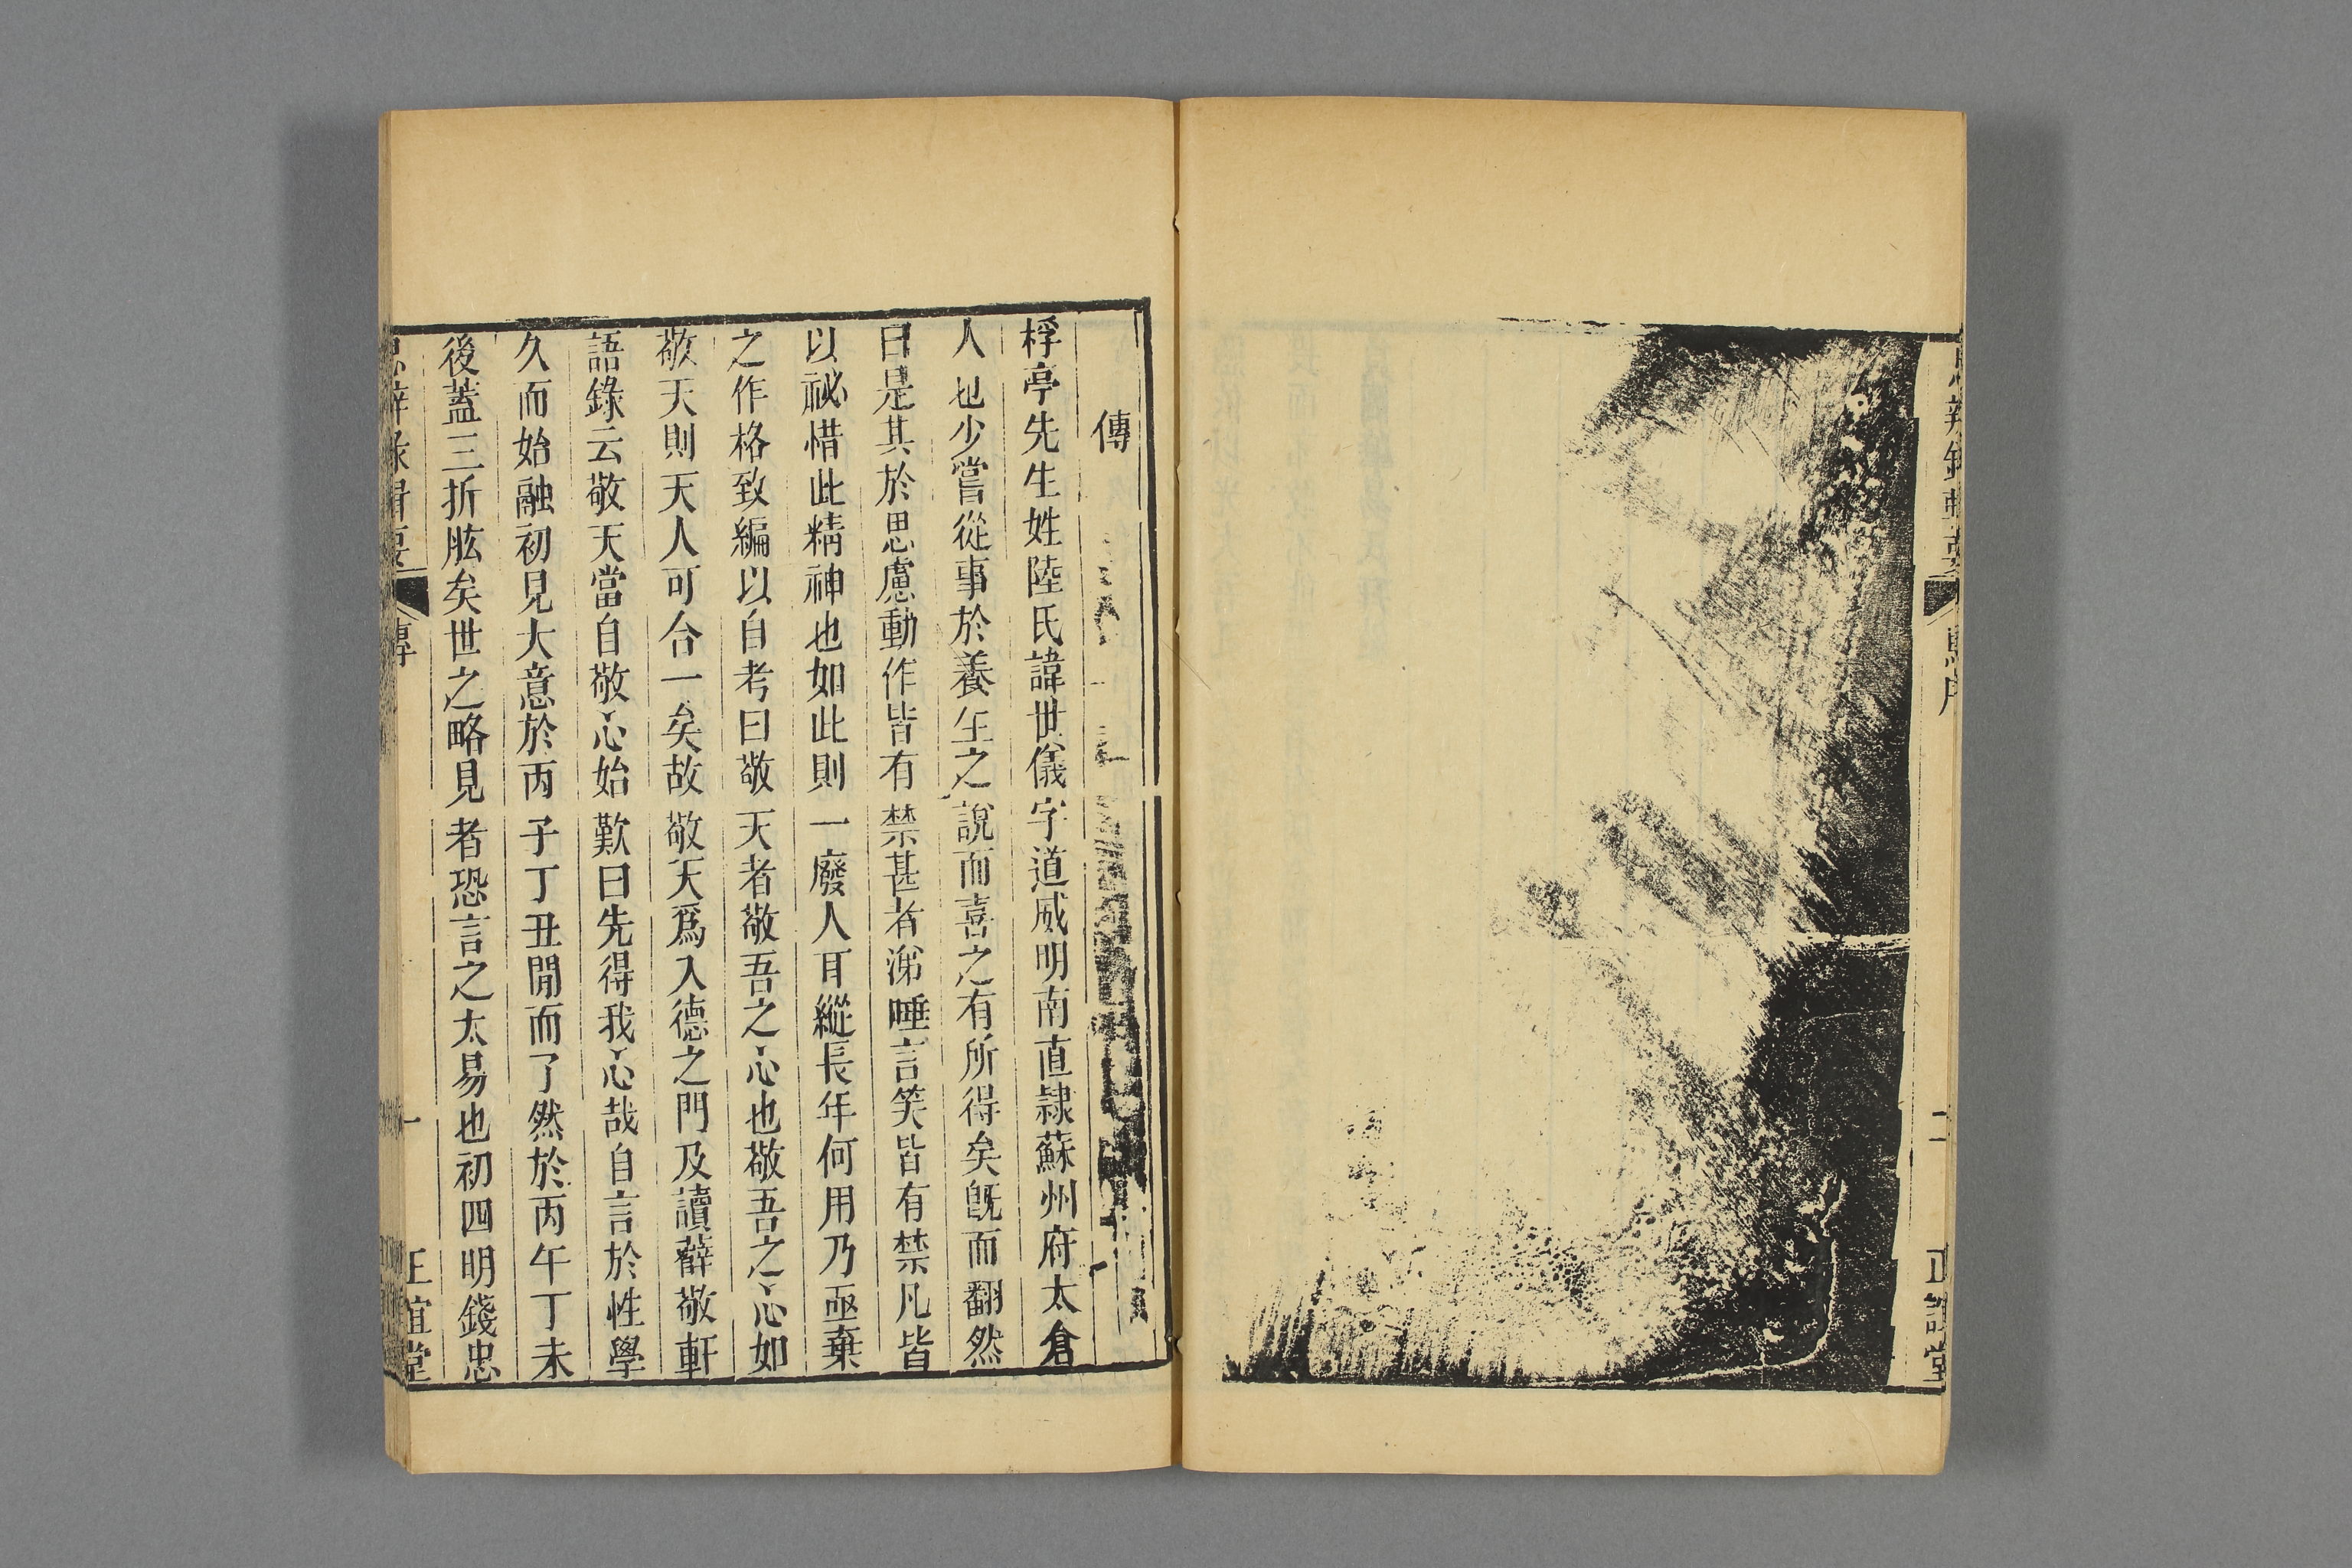 思辨錄輯要
序
二
正誼堂
傳
桴亭先生姓陸氏諱世儀字道威明南直隸蘇州府太倉
人也少嘗從事於養生之說而喜之有所得矣旣而翻然
曰是其於思慮動作皆有禁甚者涕唾言笑皆有禁凡皆
以祕惜此精神也如此則一廢人耳縱長年何用乃亟棄
之作格致編以自考曰敬天者敬吾之心也敬吾之心如
敬天則天人可合一矣故敬天爲入德之門及讀薛敬軒
語錄云敬天當自敬心始歎曰先得我心哉自言於性學
久而始融初見大意於丙子丁丑閒而了然於丙午丁未
後蓋三折肱矣世之略見者恐言之太易也初四明錢忠
思辨錄輯要
傳
一
正誼堂